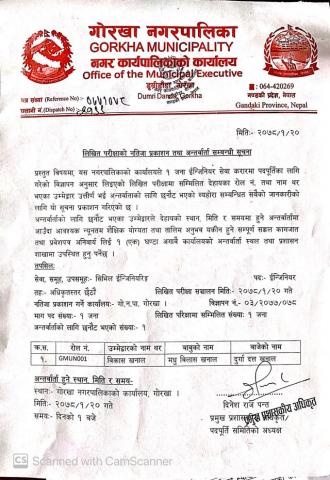 गोरखा नगरपालिका
GORKHA MUNICIPALITY
नगर कार्यपालिकाको कार्यालय
Office of the Municipal Executive
Dumri Danda, Gorkha
: 064-420269
गण्डकी प्रदेश, नेपाल
Gandaki Province, Nepal
पत्र संख्या (Reference No):-
चलानी नं. (Dispatch No):-
मिति:- २०७८/१/२०
लिखित परीक्षाको नतिजा प्रकाशन तथा अन्तर्वार्ता सम्बन्धी सूचना
प्रस्तुत विषयमा, यस नगरपालिकाको कार्यालयले १ जना ईन्जिनियर सेवा करारमा पदपूर्तिका लागि
गरेको विज्ञापन अनुसार लिइएको लिखित परीक्षामा सम्मिलित देहायका रोल नं, तथा नाम थर
भएका उम्मेद्वार उत्तीर्ण भई अन्तर्वार्ताको लागि छनौट भएको व्यहोरा सम्बन्धित सबैको जानकारीको
लागि यो सूचना प्रकाशन गरिएको छ ।
अन्तर्वार्ताको लागि छनौट भएका उम्मेद्वारले देहायको स्थान, मिति र समयमा हुने अन्तर्वार्तामा
आउँदा आवश्यक न्यूनतम शैक्षिक योग्यता तथा तालिम अनुभव खुल्ने सम्पूर्ण सक्कल कागजात
तथा प्रवेशपत्र अनिवार्य लिई १ (एक) घण्टा अगावै कार्यालयको अन्तर्वार्ता स्थल तथा प्रशासन
शाखामा उपस्थित हुनु पर्नेछ ।
तपसिल:
सेवा, समूह, उपसमूह: सिभिल ईन्जिनियरिङ्ग पद: ईन्जिनियर
तह: अधिकृतस्तर छैठौं लिखित परीक्षा संचालन मिति: २०७८/१/२० गते
नतिजा प्रकाशन गर्ने कार्यालय:- गो.न.पा. गोरखा । विज्ञापन नं.- ०३/२०७७/०७८
माग पद संख्या: १ जना लिखित परीक्षामा सम्मिलित संख्या: १ जना
अन्तर्वार्ताको लागि छनौट भएको संख्या: १
क्र.स. रोल नं. उम्मेद्वारको नाम थर बाबुको नाम बाजेको नाम
१. GMUN001 बिकास खनाल मधु बिलास खनाल दुर्गा दत्त खनाल
अन्तर्वार्ता हुने स्थान, मिति र समय-
स्थान:- गोरखा नगरपालिकाको कार्यालय, गोरखा ।
मिति:- २०७८/१/२० गते
समय:- दिनको १ बजे
दिनेश राज पन्त
प्रमुख प्रशासकीय अधिकृत
प्रमुख प्रशासकीय अधिकृत/
पदपूर्ति समितिको अध्यक्ष
CS Scanned with CamScanner